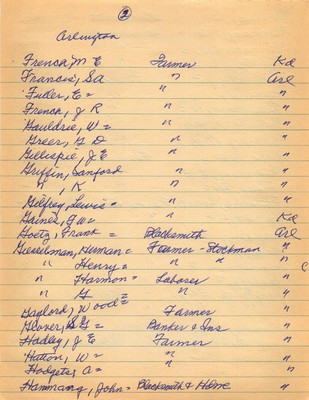 2
Arlington
French M E Farmer Kd
Francis, S A " Arl
Fuller, E = " "
French, J R " "
Gouldrie, W = " "
Greer, G D " "
Gillispie, J E " "
Griffin, Sanford " "
", K " "
Gilfrey, Lewis = " "
Gaines, F W = " Kd
Goetz, Frank = Blacksmith Arl
Gieselman, Herman = Farmer - Stockman "
" Henry = " " "
" Harmon = Laborer "
" G " "
Gaylord, Wood = Farmer "
Glover, S G = Banker & Ins "
Hadley, J E Farmer "
Hatton, W = " "
Hodgets, A = " "
Hammang, John = Blacksmith &